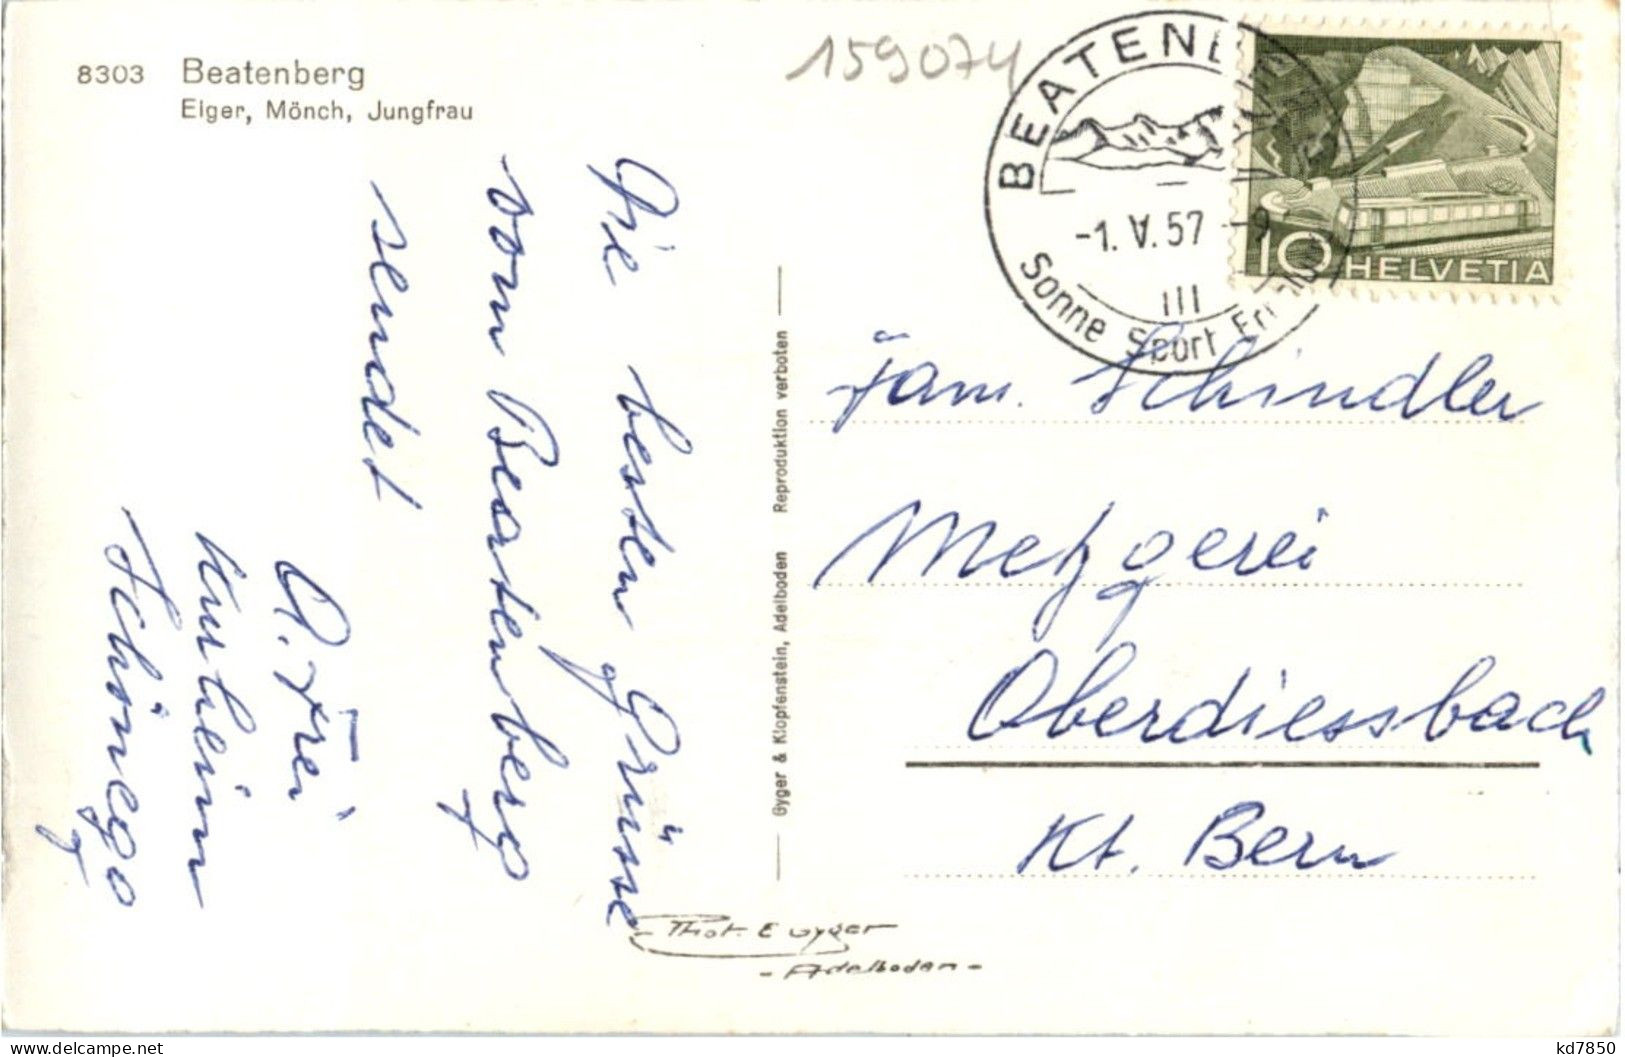 8303 Beatenberg
Eiger, Mönch, Jungfrau
159074
BEATENBERG
-1. V. 57 -9
III
Sonne Sport
10 HELVETIA
Die besten Grüsse
vom Beatenberg
sendet
A. Frei
Kurheim
Schönegg
Gyger & Klopfenstein, Adelboden Reproduktion verboten
Fam. Schindler
Metzgerei
Oberdiessbach
Kt. Bern
Phot. E Gyger
- Adelboden -
kd7850